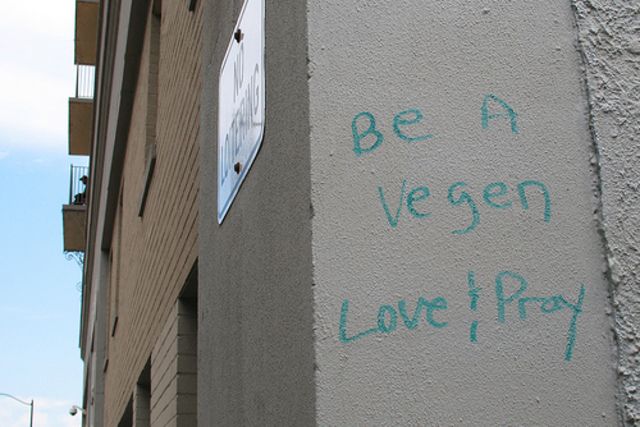 NO
LOITERING
Be A
vegen
Love & Pray